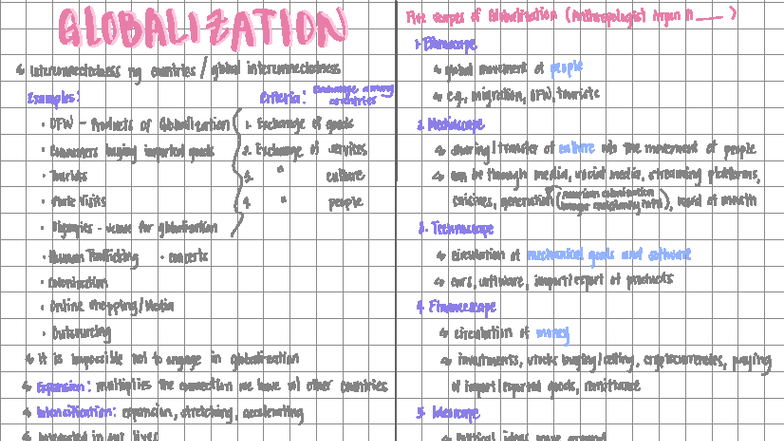 GLOBALIZATION
↳ Interconnectedness ng countries / global interconnectedness
Examples:
• OFW - Products of Globalization
• Consumers buying imported goods
• Tourists
• State Visits
• Olympics - venue for globalization
• Human Trafficking • concerts
• colonization
• Online shopping/Media
• Outsourcing
Criteria: exchange among countries
1. Exchange of goods
2. Exchange of services
3. " culture
4. " people
↳ it is impossible not to engage in globalization
↳ Expansion: multiplies the connection we have w/ other countries
↳ Intensification: expansion, stretching, accelerating
↳ integrated in our lives
Five scapes of Globalization (Anthropologist Arjun A____ )
1. Ethnoscape
↳ global movement of people
↳ e.g., migration, OFW, tourists
2. Mediascape
↳ sharing/transfer of culture w/o the movement of people
↳ can be through media, social media, streaming platforms,
cuisines, generational (american colonization), word of mouth
3. Technoscape
↳ circulation of mechanical goods and software
↳ cars, software, import/export of products
4. Financescape
↳ circulation of money
↳ investments, stocks buying/selling, cryptocurrencies, paying
of import/exported goods, remittance
5. Ideoscape
↳ political ideas move around